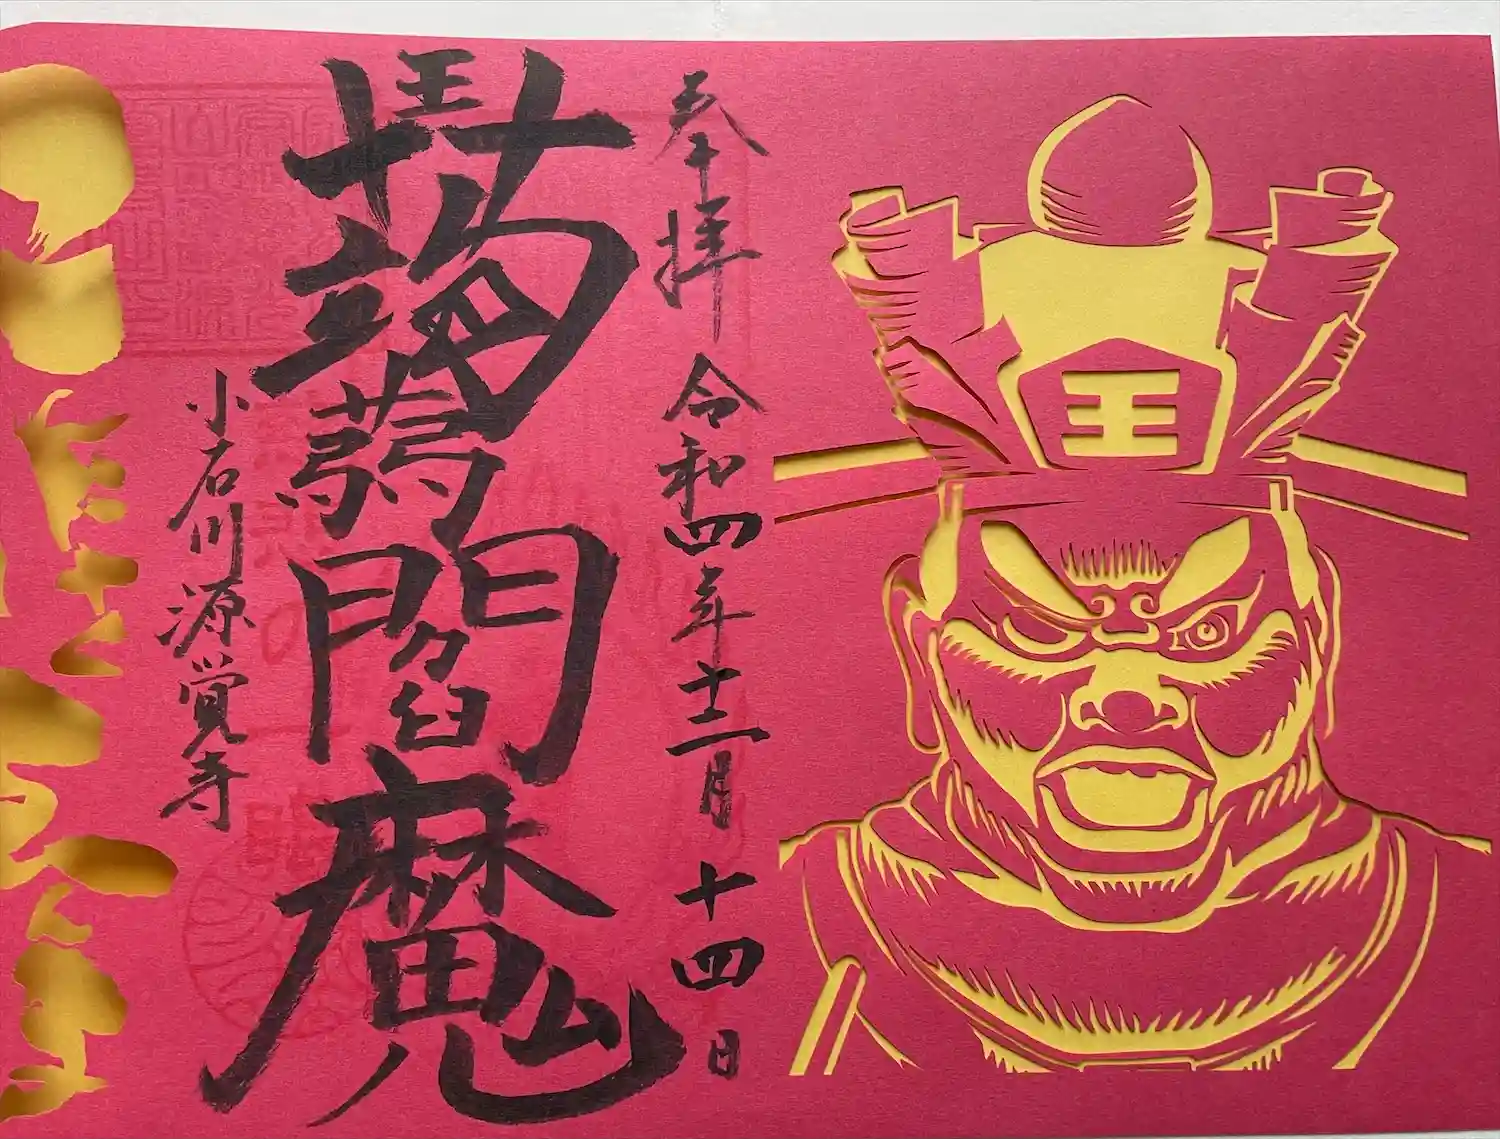 奉拝 令和四年十二月十四日
蒟蒻閻魔
小石川源覚寺
王